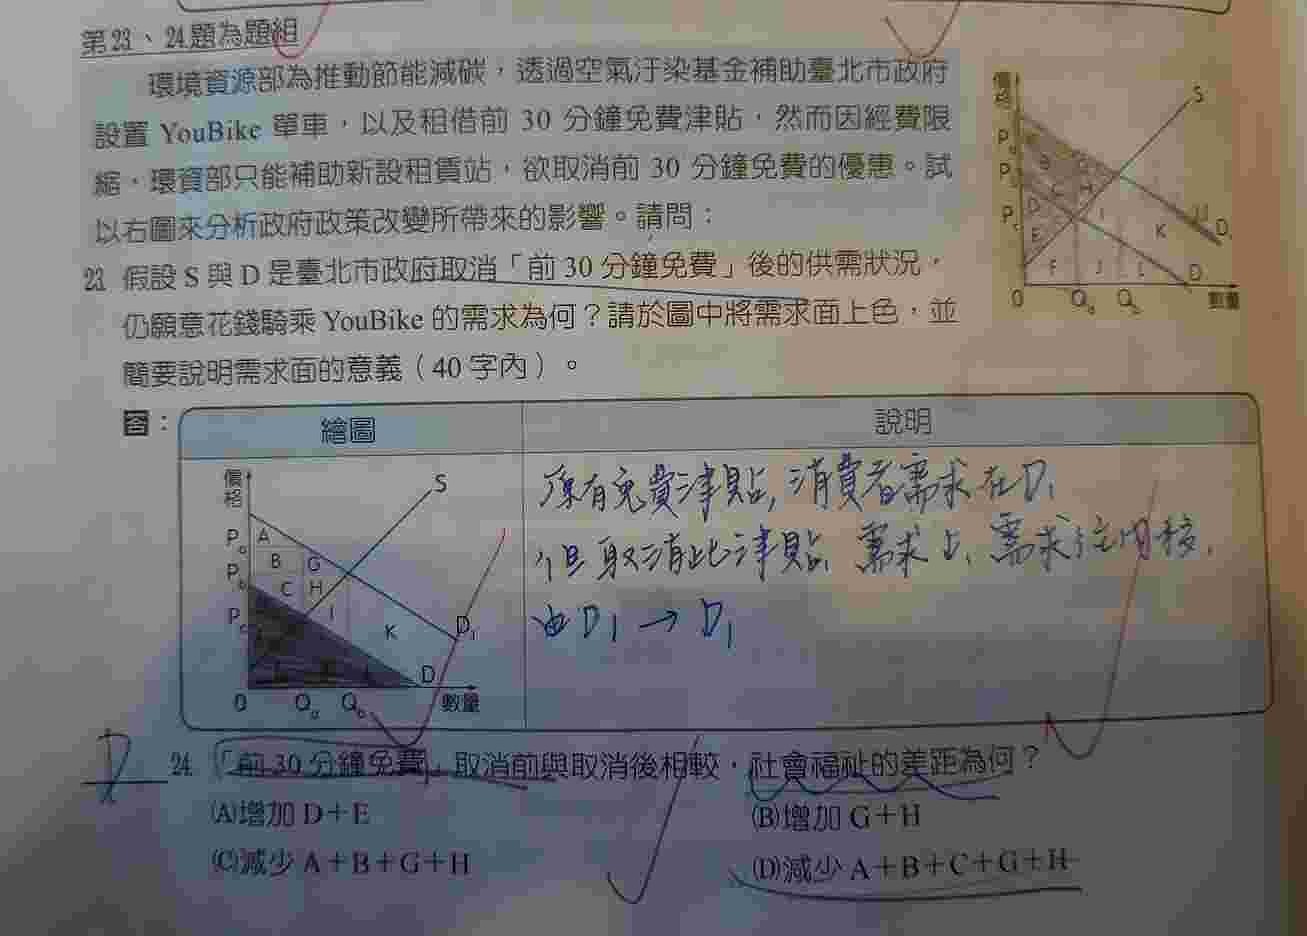 第23、24題為題組
環境資源部為推動節能減碳，透過空氣汙染基金補助臺北市政府
設置 YouBike 單車，以及租借前 30 分鐘免費津貼，然而因經費限
縮，環資部只能補助新設租賃站，欲取消前 30 分鐘免費的優惠。試
以右圖來分析政府政策改變所帶來的影響。請問：
價格
S
P
a
B
G
P
b
C
H
D
I
P
c
E
K
D₁
F
J
L
D
0
Qa
Qb
數量
23. 假設 S 與 D 是臺北市政府取消「前 30 分鐘免費」後的供需狀況，
仍願意花錢騎乘 YouBike 的需求為何？請於圖中將需求面上色，並
簡要說明需求面的意義（40 字內）。
答：
繪圖
說明
價格
S
Pa
A
B
G
Pb
C
H
I
Pc
K
D₁
D
0
Qa
Qb
數量
原有免費津貼，消費者需求在D₁
但取消此津貼，需求上，需求往內移，
由D₁→D₁
D
24. 「前 30 分鐘免費」取消前與取消後相較，社會福祉的差距為何？
(A)增加 D＋E
(B)增加 G＋H
(C)減少 A＋B＋G＋H
(D)減少 A＋B＋C＋G＋H